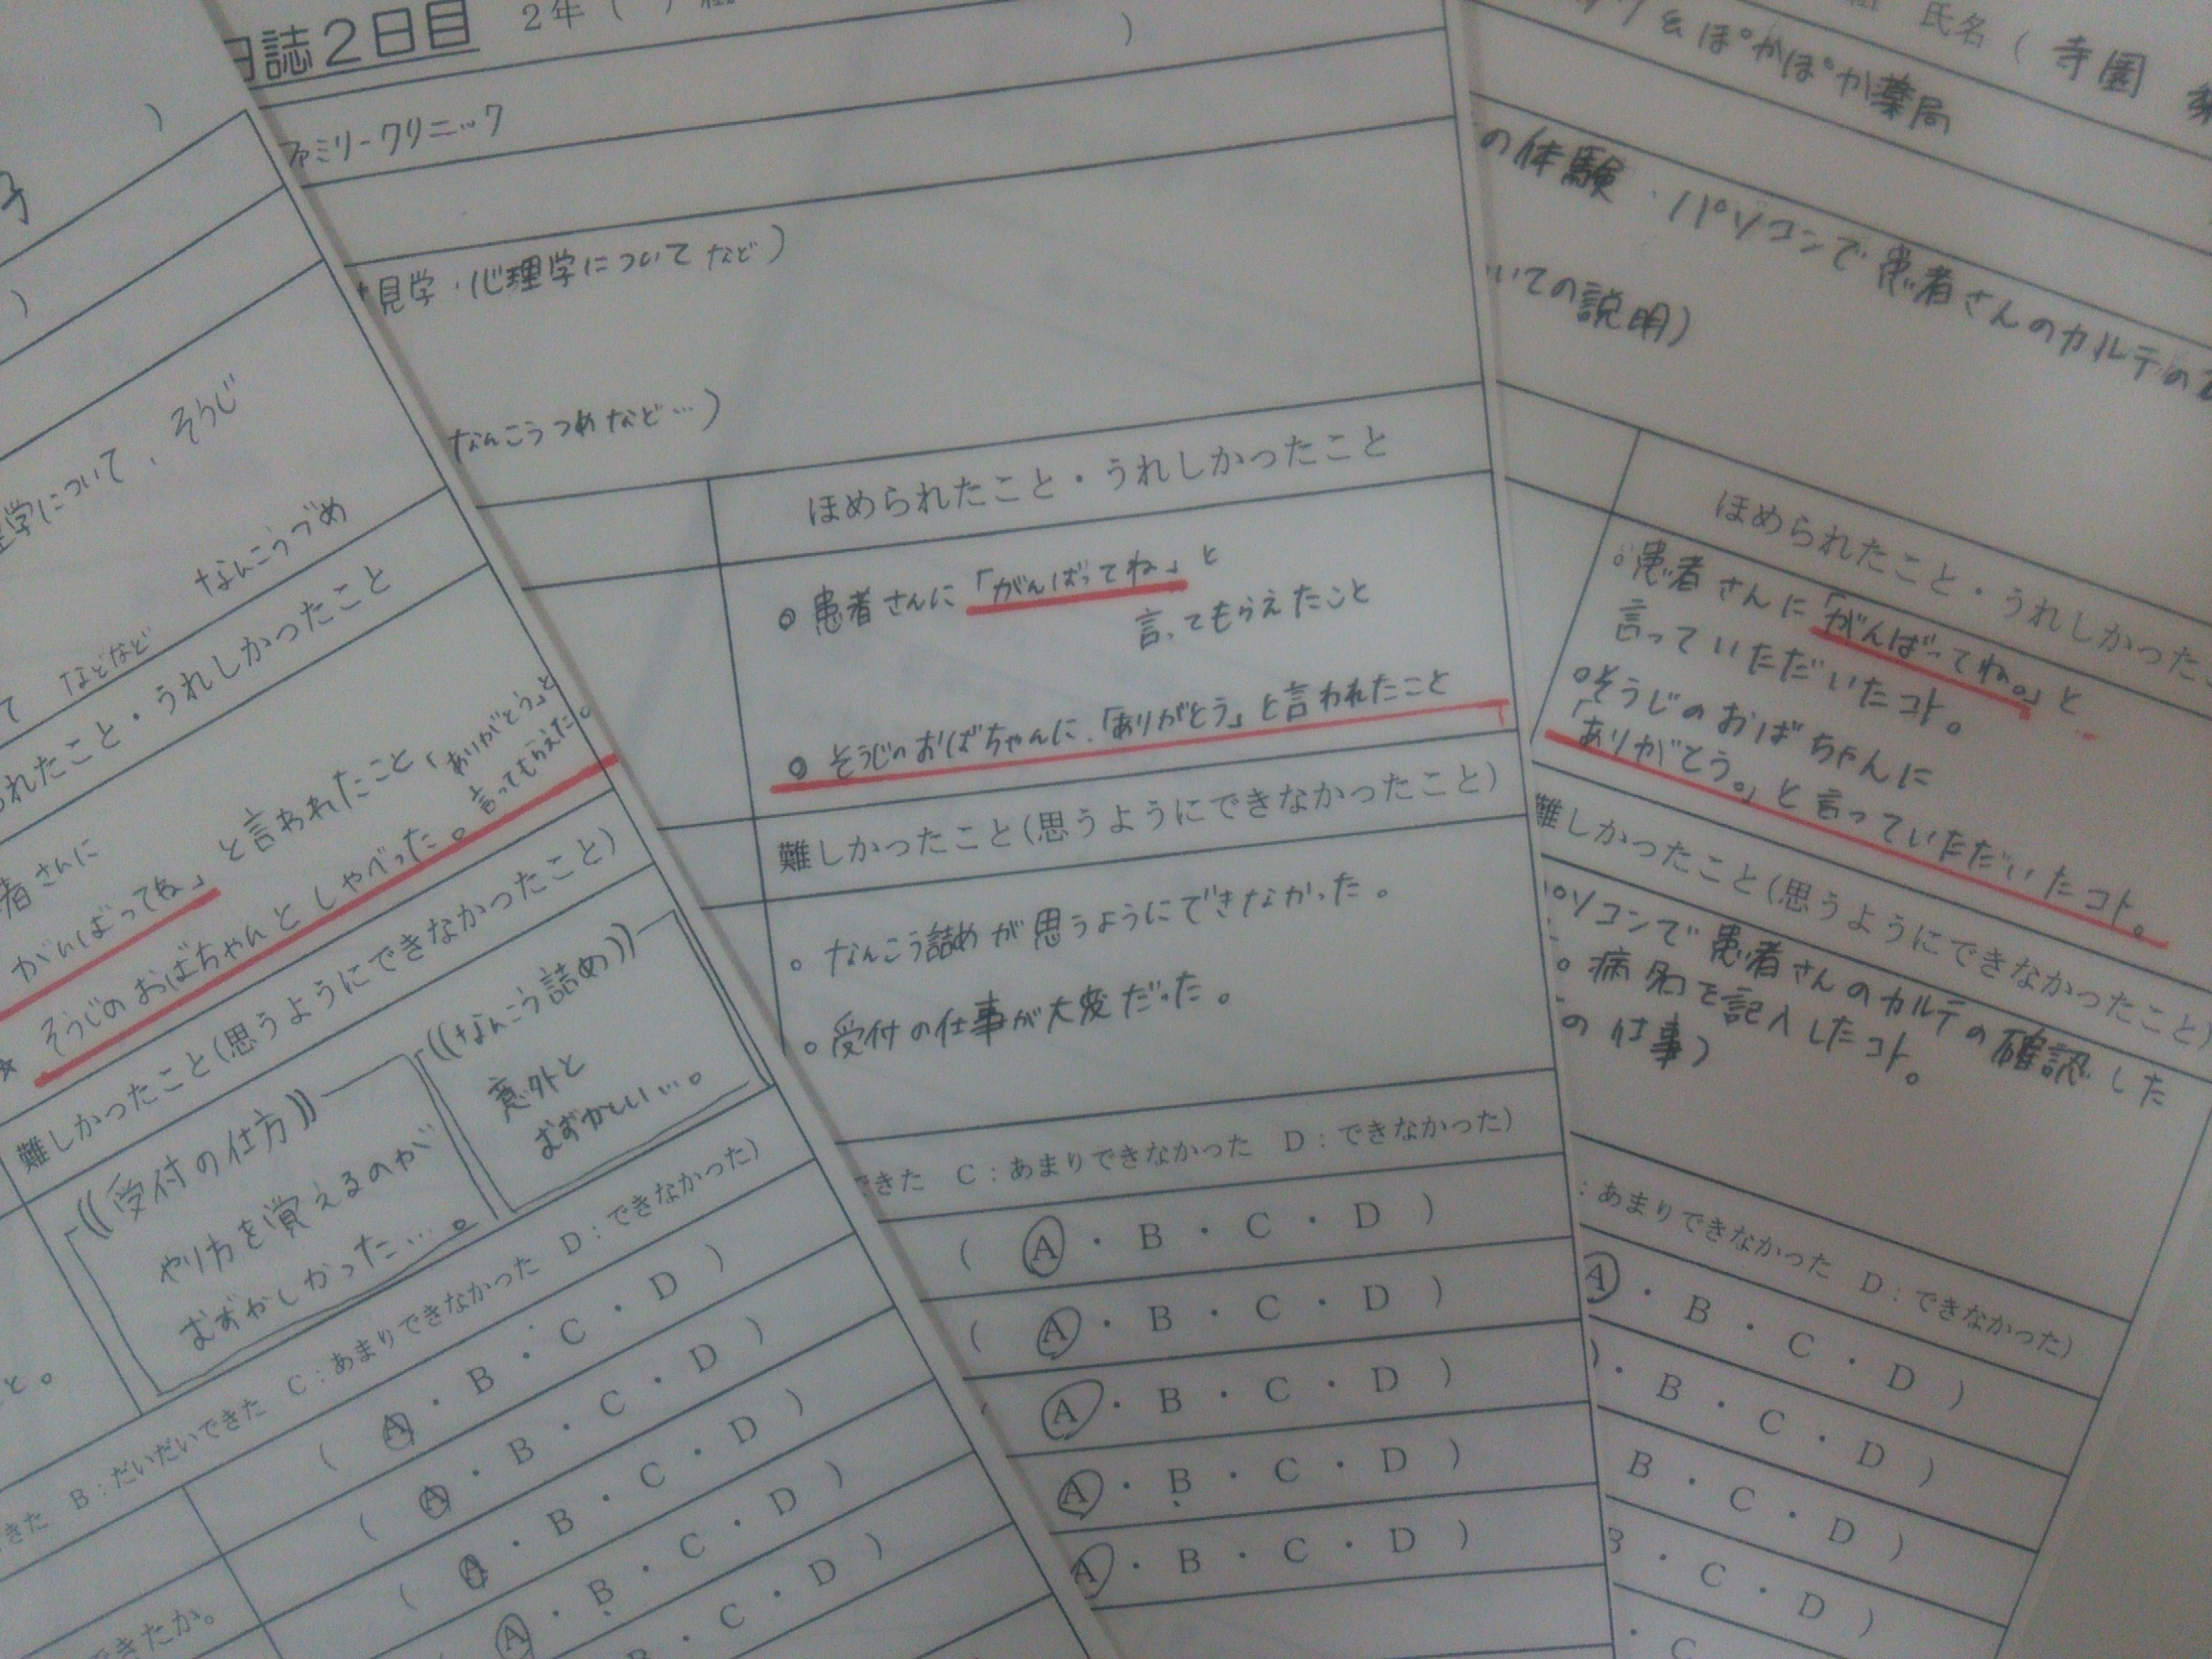 子
)
)
学について、そうじ
なんこうづめ
て 「などなど
られたこと・うれしかったこと
者さんに
がんばってね」と言われたこと
「ありがとう」と
言ってもらえた。
☆ そうじのおばちゃんとしゃべった。
難しかったこと(思うようにできなかったこと)
((受付の仕方))
やり方を覚えるのが
むずかしかった…。
((なんこう詰め))
意外と
むずかしい…。
と。
きた B:だいたいできた C:あまりできなかった D:できなかった)
( A・B・C・D )
( A・B・C・D )
( A・B・C・D )
A・B・C・D )
B・C・D )
できたか。
日誌2日目 2年( )組
)
ファミリークリニック
見学・心理学について など)
なんこうつめなど…)
ほめられたこと・うれしかったこと
◎患者さんに「がんばってね」と
言ってもらえたこと
◎そうじのおばちゃんに、「ありがとう」と言われたこと
難しかったこと(思うようにできなかったこと)
。なんこう詰めが思うようにできなかった。
。受付の仕事が大変だった。
できた C:あまりできなかった D:できなかった)
( A・B・C・D )
( A・B・C・D )
( A・B・C・D )
A・B・C・D )
A・B・C・D )
組 氏名( 寺園
&ぽかぽか薬局
の体験・パソコンで患者さんのカルテの
いての説明)
ほめられたこと・うれしかったこ
。患者さんに「がんばってね。」と
言っていただいたコト。
。そうじのおばちゃんに
「ありがとう。」と言っていただいたコト。
難しかったこと(思うようにできなかったこと)
パソコンで患者さんのカルテの確認した
。病名を記入したコト。
の仕事)
:あまりできなかった D:できなかった)
A・B・C・D )
)・B・C・D )
B・C・D )
B・C・D )
・C